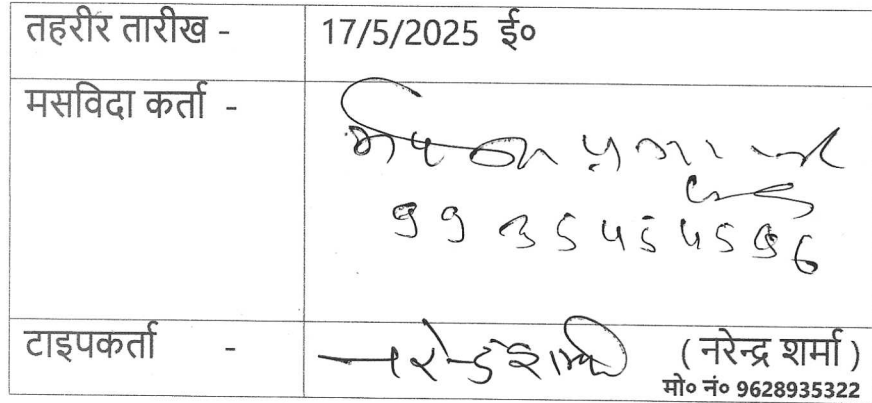 तहरीर तारीख - 17/5/2025 ई०
मसविदा कर्ता -
टाइपकर्ता - नरेन्द्र शर्मा ( नरेन्द्र शर्मा )
मो० नं० 9628935322